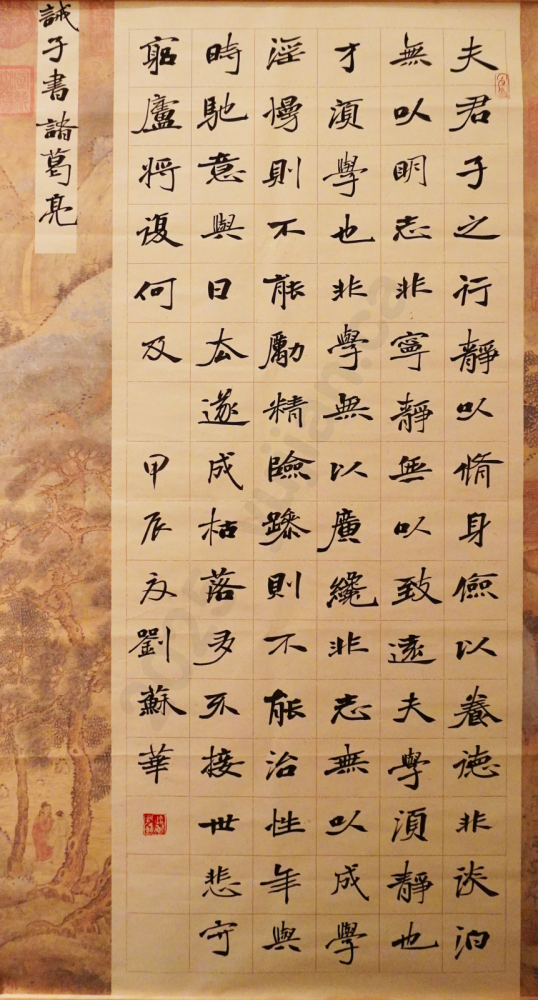 夫君子之行靜以脩身儉以養德非淡泊
無以明志非寧靜無以致遠夫學須靜也
才須學也非學無以廣纔非志無以成學
淫慢則不能勵精險躁則不能治性年與
時馳意與日去遂成枯落多不接世悲守
窮廬將復何及 甲辰夏劉蘇華
誡子書諸葛亮